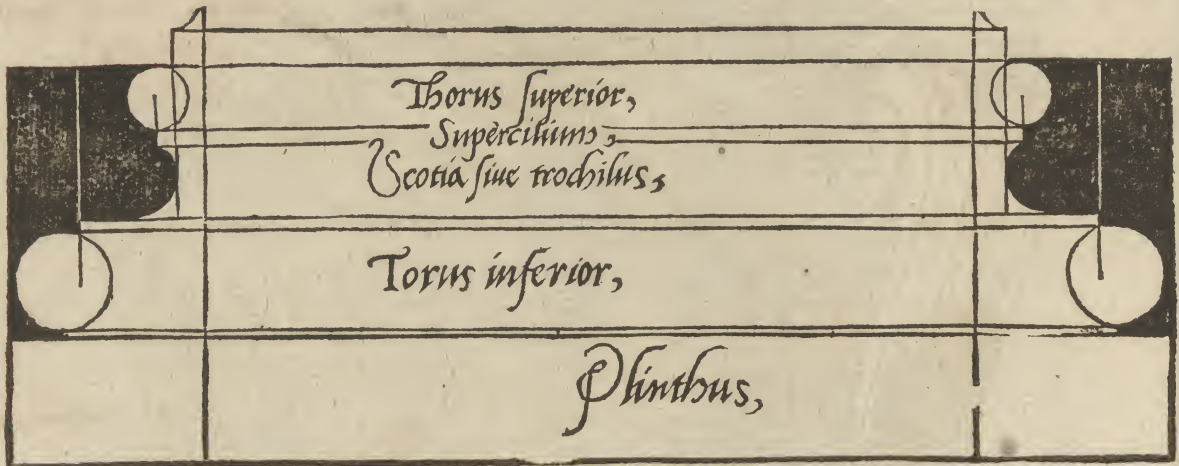 Thorus ſuperior,
Supercilium,
Scotia ſiue trochilus,
Torus inferior,
Plinthus,